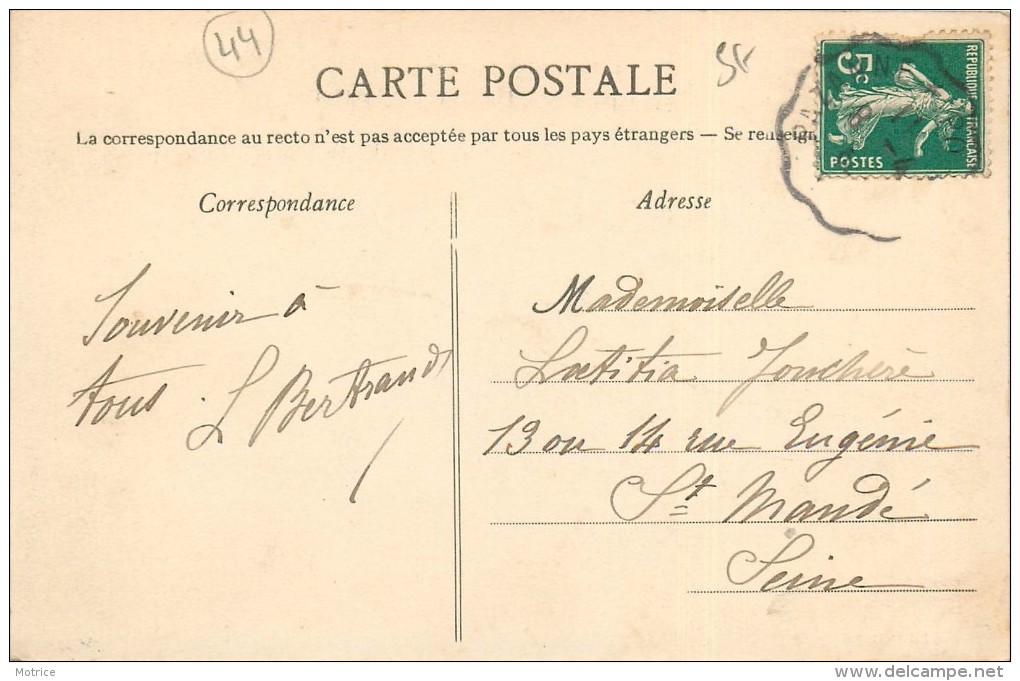 44
CARTE POSTALE
La correspondance au recto n'est pas acceptée par tous les pays étrangers — Se renseign
5c
REPUBLIQUE FRANÇAISE
POSTES
Correspondance
Adresse
Souvenir à
tous. L Bertrand
Mademoiselle
Lœtitia Jonchère
13 ou 14 rue Eugénie
St Mandé
Seine
Motrice
delcampe.net